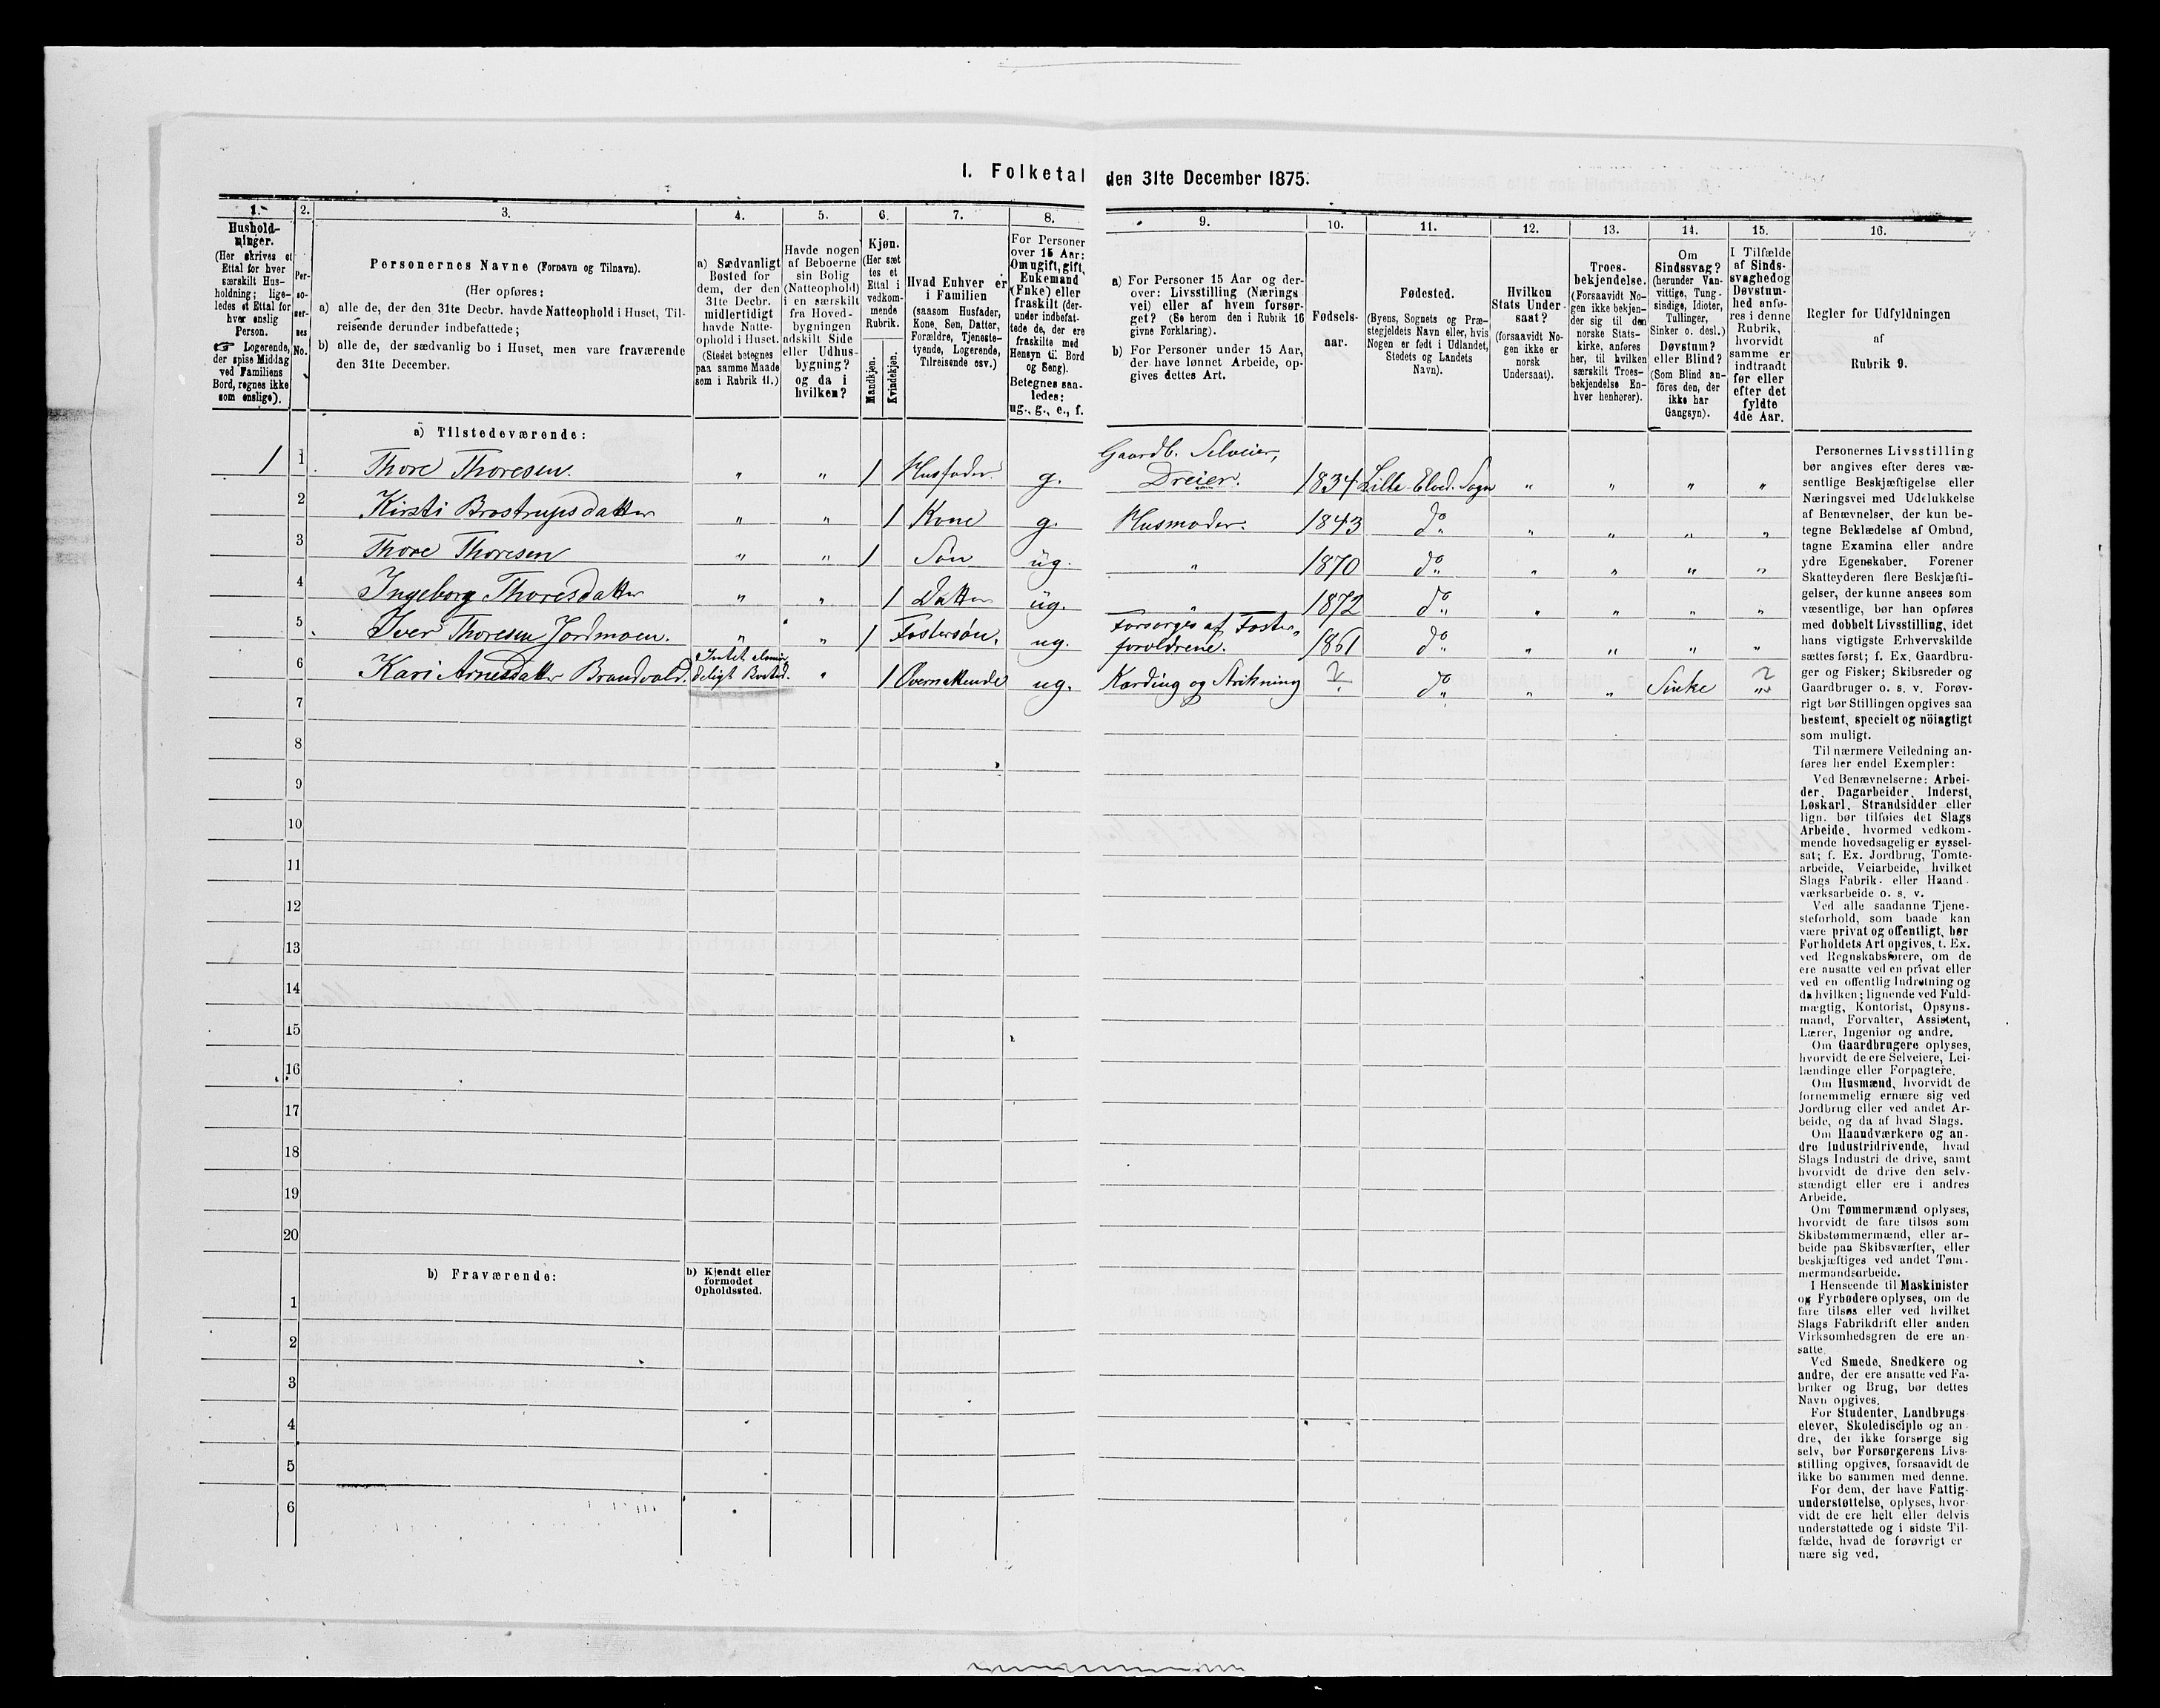 I. Folketal den 31te December 1875.
1. 2. 3. 4. 5. 6. 7. 8. 9. 10. 11. 12. 13. 14. 15. 16.
Hushold-
ninger.
(Her skrives et
Ettal for hver
særskilt Hus-
holdning; lige-
ledes et Ettal for
hver enslig
Person.
☞ Logerende,
der spise Middag
ved Familiens
Bord, regnes ikke
som enslige).
Per-
so-
ner-
nes
No.
Personernes Navne (Fornavn og Tilnavn).
(Her opføres:
a) alle de, der den 31te Decbr. havde Natteophold i Huset, Til-
reisende derunder indbefattede;
b) alle de, der sædvanlig bo i Huset, men vare fraværende
den 31te December.
a) Sædvanligt
Bosted for
dem, der den
31te Decbr.
midlertidigt
havde Natte-
ophold i Huset.
(Stedet betegnes
paa samme Maade
som i Rubrik 11.)
Havde nogen
af Beboerne
sin Bolig
(Natteophold)
i en særskilt
fra Hoved-
bygningen
adskilt Side
eller Udhus-
bygning?
og da i
hvilken?
Kjøn.
(Her sæt
tes et
Ettal i
vedkom-
mende
Rubrik.
Mandkjøn.
Kvindekjøn.
Hvad Enhver er
i Familien
(saasom Husfader,
Kone, Søn, Datter,
Forældre, Tjeneste-
tyende, Logerende,
Tilreisende osv.)
For Personer
over 15 Aar:
Om ugift, gift,
Enkemand
(Enke) eller
fraskilt (der-
under indbefat-
tede de, der ere
fraskilte med
Hensyn til Bord
og Seng).
Betegnes saa-
ledes:
ug., g., e., f.
a) For Personer 15 Aar og der-
over: Livsstilling (Nærings
vei) eller af hvem forsør-
get? (Se herom den i Rubrik 16
givne Forklaring).
b) For Personer under 15 Aar,
der have lønnet Arbeide, op-
gives dettes Art.
Fødsels-
aar.
Fødested.
(Byens, Sognets og Præ-
stegjeldets Navn eller, hvis
Nogen er født i Udlandet,
Stedets og Landets
Navn).
Hvilken
Stats Under-
saat?
(forsaavidt No-
gen ikke er
norsk
Undersaat).
Troes-
bekjendelse.
(Forsaavidt No-
gen ikke bekjen-
der sig til den
norske Stats-
kirke, anføres
her, til hvilken
særskilt Troes-
bekjendelse En-
hver henhører).
Om
Sindssvag?
(herunder Van-
vittige, Tung-
sindige, Idioter,
Tullinger,
Sinker o. desl.)
Døvstum?
eller Blind?
(Som Blind an-
føres den, der
ikke har
Gangsyn).
I Tilfælde
af Sinds-
svaghed og
Døvstum-
hed anfø-
res i denne
Rubrik,
hvorvidt
samme er
indtraadt
før eller
efter det
fyldte
4de Aar.
Regler for Udfyldningen
af
Rubrik 9.
a) Tilstedeværende:
1 1 Thore Thoresen. „ „ 1 Husfader g. Gaardb. Selveier, Dreier. 1834 Lille-Elvd. Sogn „ „ „ „
2 Kirsti Brostrupsdatter „ „ 1 Kone g. Husmoder. 1843 do „ „ „ „
3 Thore Thoresen „ „ 1 Søn ug. „ 1870 do „ „ „ „
4 Ingeborg Thoresdatter „ „ 1 Datter ug. „ 1872 do „ „ „ „
5 Iver Thoresen Jordmoen. „ „ 1 Fostersøn. ug. Forsørges af Foster-forældrene. 1861 do „ „ „ „
6 Kari Arnesdatter Brandvold. Intet almin-deligt Bosted. „ 1 Overnattende ug. Karding og Strikning ? do „ „ Sinke ?
7
8
9
10
11
12
13
14
15
16
17
18
19
20
b) Fraværende:
b) Kjendt eller
formodet
Opholdssted.
1
2
3
4
5
6
Personernes Livsstilling
bør angives efter deres væ-
sentlige Beskjæftigelse eller
Næringsvei med Udelukkelse
af Benævnelser, der kun be-
tegne Beklædelse af Ombud,
tagne Examina eller andre
ydre Egenskaber. Forener
Skatteyderen flere Beskjæfti-
gelser, der kunne ansees som
væsentlige, bør han opføres
med dobbelt Livsstilling, idet
hans vigtigste Erhvervskilde
sættes først; f. Ex. Gaardbru-
ger og Fisker; Skibsreder og
Gaardbruger o. s. v. Forøv-
rigt bør Stillingen opgives saa
bestemt, specielt og nöiagtigt
som muligt.
Til nærmere Veiledning an-
føres her endel Exempler:
Ved Benævnelserne: Arbei-
der, Dagarbeider, Inderst,
Løskarl, Strandsidder eller
lign. bør tilføies det Slags
Arbeide, hvormed vedkom-
mende hovedsagelig er syssel-
sat; f. Ex. Jordbrug, Tomte-
arbeide, Veiarbeide, hvilket
Slags Fabrik- eller Haand-
værksarbeide o. s. v.
Ved alle saadanne Tjene-
steforhold, som baade kan
være privat og offentligt, bør
Forholdets Art opgives, t. Ex.
ved Regnskabsførere, om de
ere ansatte ved en privat eller
ved en offentlig Indretning og
da hvilken; lignende ved Fuld-
mægtig, Kontorist, Opsyns-
mand, Forvalter, Assistent,
Lærer, Ingeniør og andre.
Om Gaardbrugere oplyses,
hvorvidt de ere Selveiere, Lei-
lændinge eller Forpagtere.
Om Husmænd, hvorvidt de
fornemmelig ernære sig ved
Jordbrug eller ved andet Ar-
beide, og da af hvad Slags.
Om Haandværkere og an-
dre Industridrivende, hvad
Slags Industri de drive, samt
hvorvidt de drive den selv-
stændigt eller ere i andres
Arbeide.
Om Tømmermænd oplyses,
hvorvidt de fare tilsøs som
Skibstømmermænd, eller ar-
beide paa Skibsværfter, eller
beskjæftiges ved andet Tøm-
mermandsarbeide.
I Henseende til Maskinister
og Fyrbødere oplyses, om de
fare tilsøs eller ved hvilket
Slags Fabrikdrift eller anden
Virksomhedsgren de ere an-
satte.
Ved Smede, Snedkere og
andre, der ere ansatte ved Fa-
briker og Brug, bør dettes
Navn opgives.
For Studenter, Landbrugs-
elever, Skoledisciple og an-
dre, der ikke forsørge sig
selv, bør Forsørgerens Livs-
stilling opgives, forsaavidt de
ikke bo sammen med denne.
For dem, der have Fattig-
understøttelse, oplyses, hvor-
vidt de ere helt eller delvis
understøttede og i sidste Til-
fælde, hvad de forøvrigt er
nære sig ved.